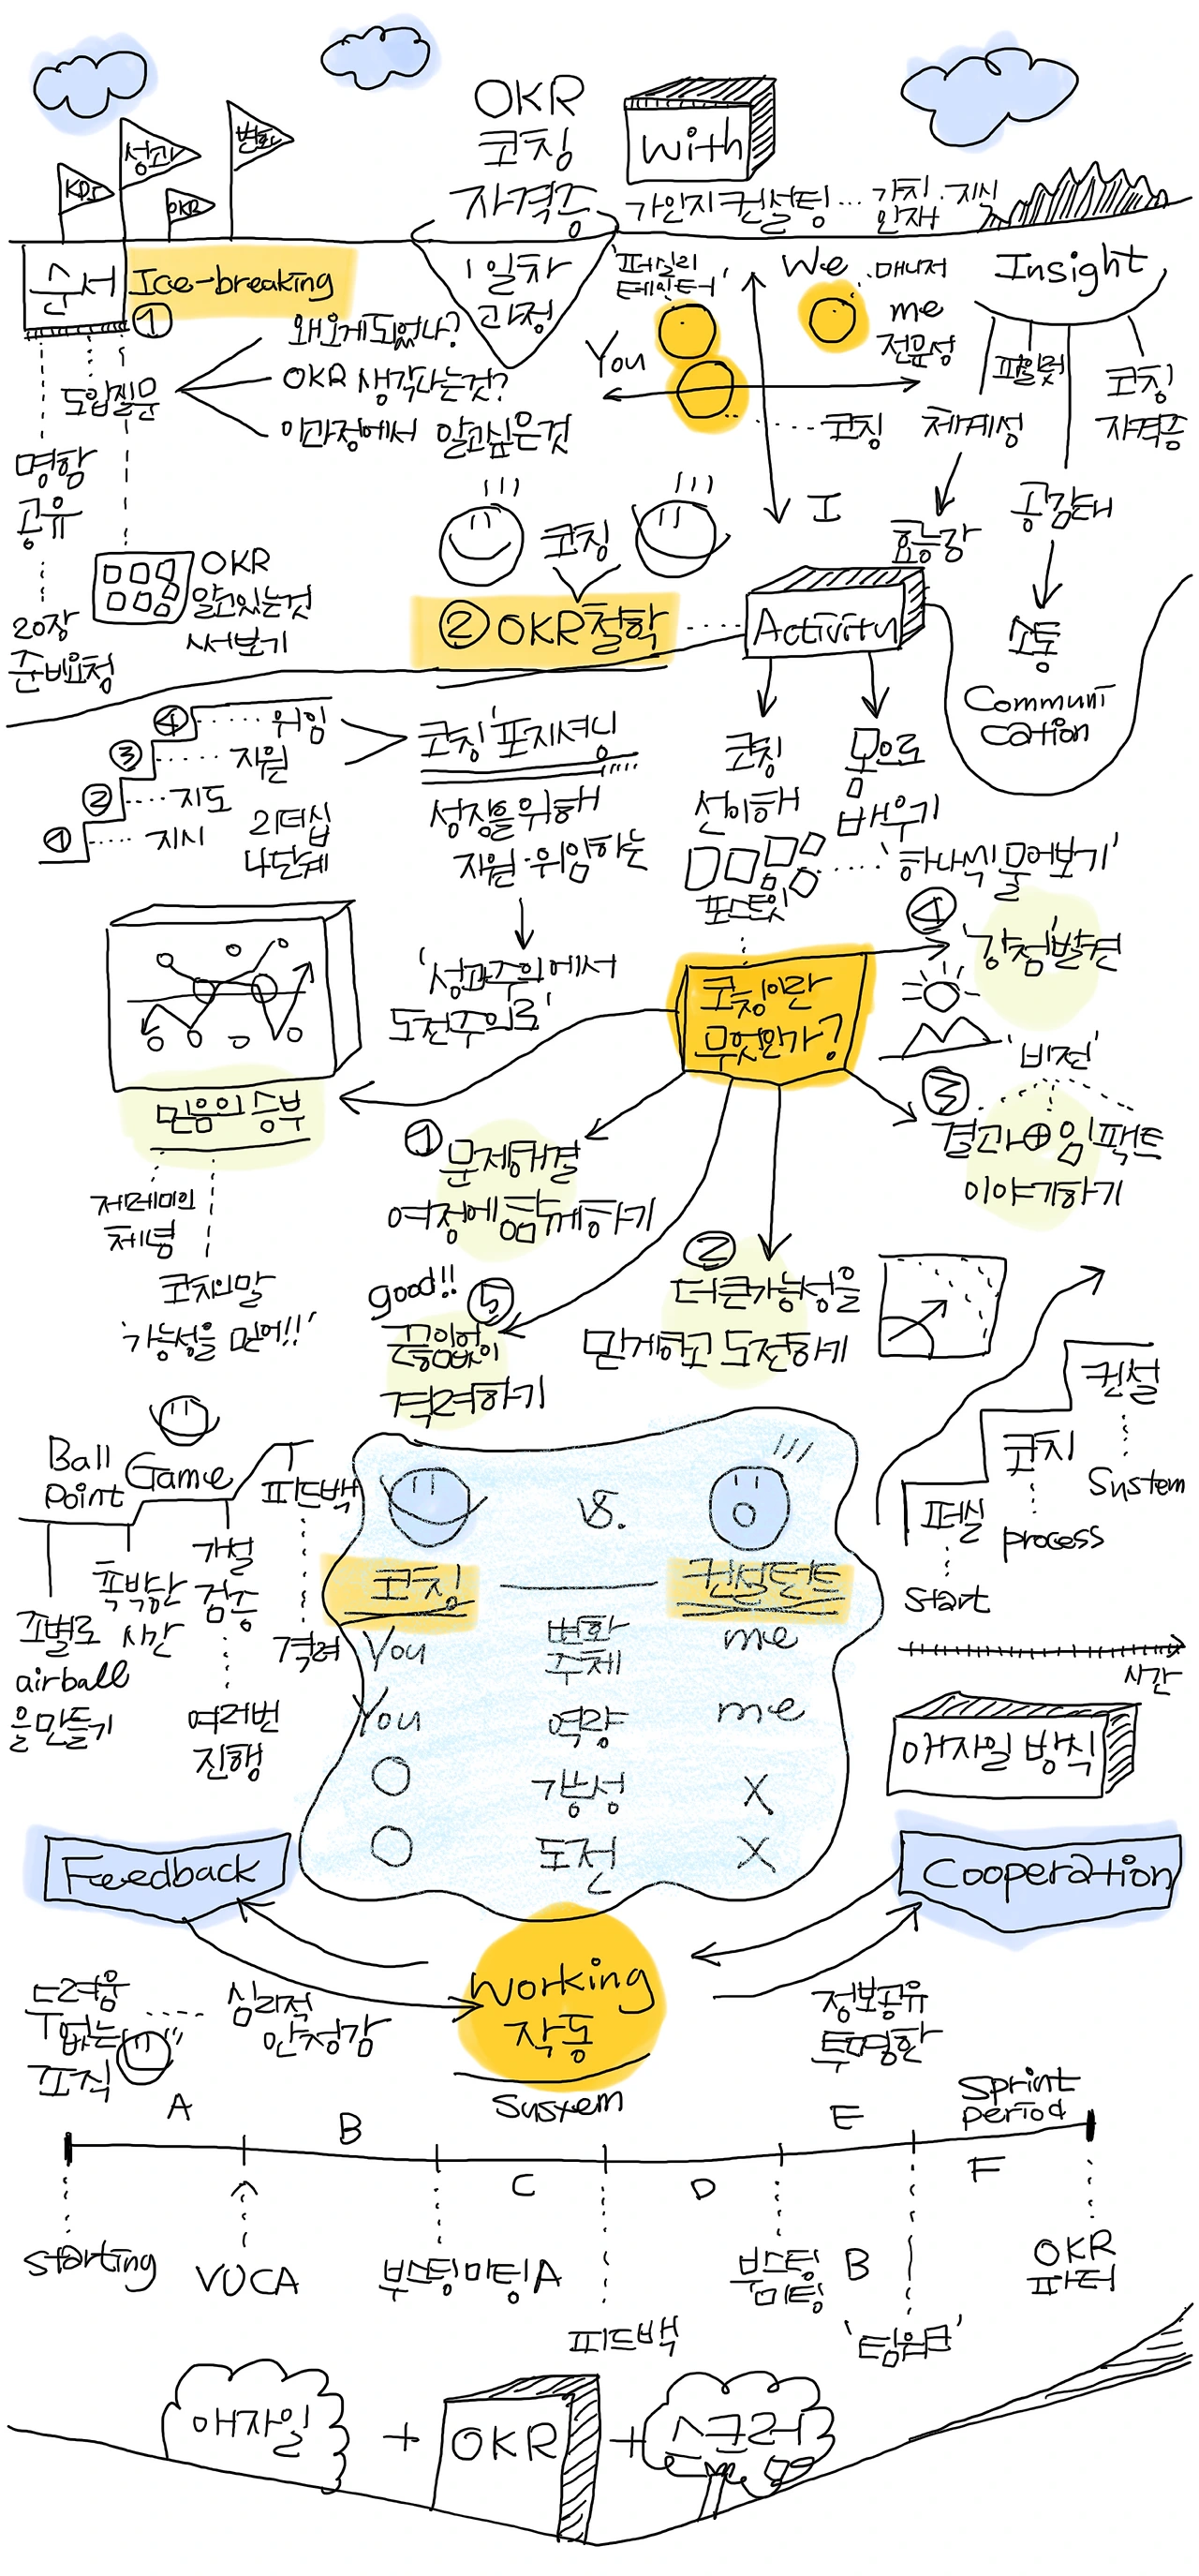 OKR
코칭
자격증
with
가인지 컨설팅... 가치. 지식
인재
KPI
성과
OKR
변화
순서
Ice-breaking
①
1일차
과정
왜 오게 되었나?
OKR 생각나는것?
이과정에서 알고싶은것
도입질문
명함
공유
20장
준비요청
OKR
알고있는것
써보기
'퍼실리
테이터'
You
We
매니저
me
전문성
코칭
I
Insight
체계성
파일럿
코칭
자격증
효능감
공감대
소통
Communi
cation
코칭
② OKR 철학
Activity
④
위임
③
지원
②
지도
①
지시
리더십
4단계
코칭 '포지셔닝
성장을위해
지원·위임하는
'성과주의에서
도전주의로'
코칭
선이해
몸으로
배우기
포스트잇
'하나씩 물어보기'
코칭이란
무엇인가?
④
'강점'발견
'비전'
③
결과⊕임팩트
이야기하기
믿음의 승부
제레미의
체념
코치의말
'가능성을 믿어!!'
①
문제해결
여정에함께하기
②
더큰가능성을
믿게하고 도전하기
good!!
⑤
끊임없이
격려하기
Ball
Point
Game
피드백
조별로
airball
을만들기
촉박한
시간
가설
검증
여러번
진행
격려
VS.
코칭
컨설턴트
You
변화
주체
me
You
역량
me
O
가능성
X
O
도전
X
퍼실
start
코치
process
컨설
System
시간
애자일 방식
Feedback
Cooperation
두려움
없는
조직
심리적
안정감
Working
작동
System
정보공유
투명한
A
B
C
D
E
Sprint
period
F
starting
VUCA
부스팅미팅A
피드백
부스팅
미팅
B
'팀워크'
OKR
파티
애자일
+
OKR
+
스크럼